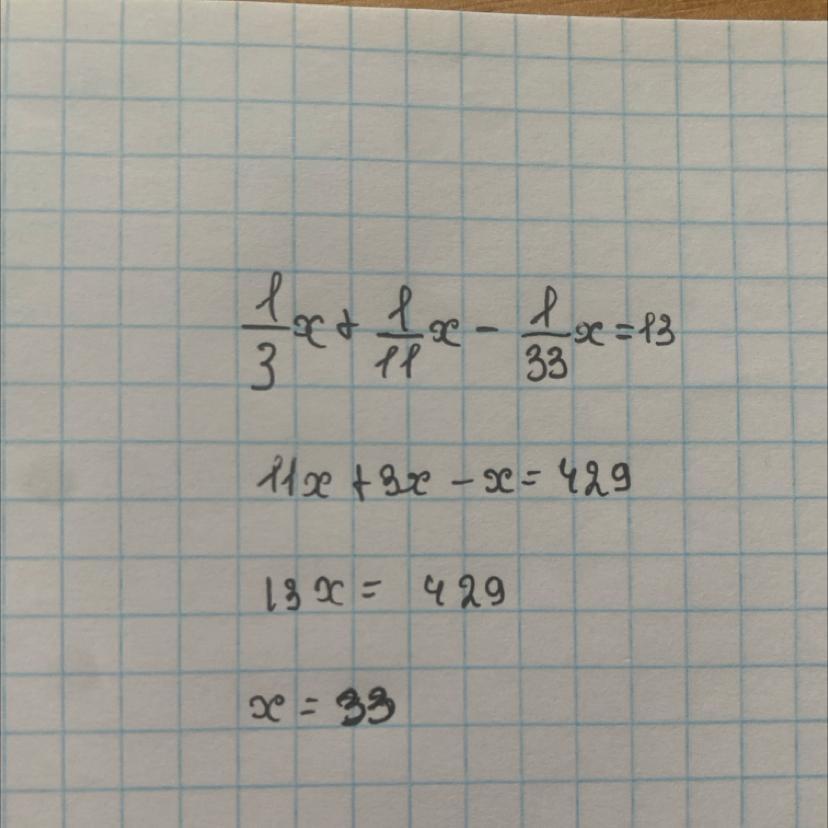 1/3 x + 1/11 x - 1/33 x = 13
11x + 3x - x = 429
13x = 429
x = 33